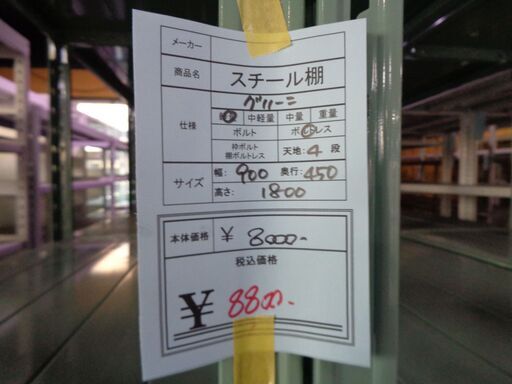 メーカー
商品名 スチール棚
グリーン
仕様 軽 中軽量 中量 重量
ボルト ボルトレス
枠ボルト 棚ボルトレス 天地 4 段
サイズ 幅: 900 奥行: 450
高さ: 1800
本体価格 ¥ 8000-
税込価格
¥ 8800-